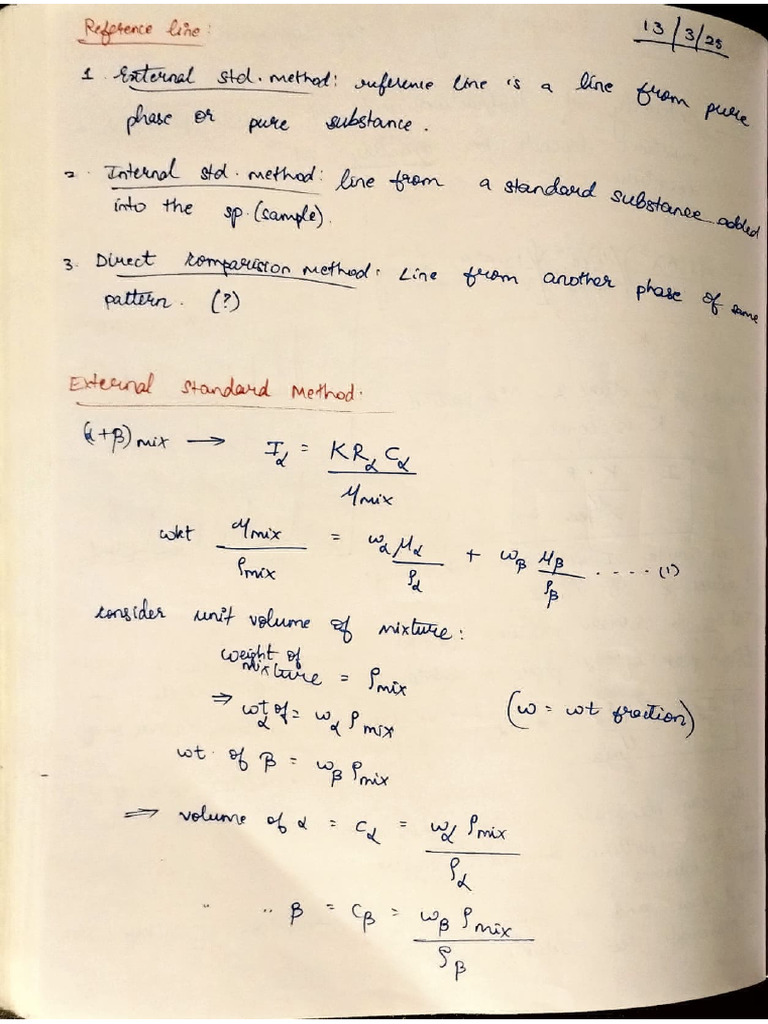 Reference line:
13/3/25
1. External std. method: reference line is a line from pure
phase or pure substance.
2. Internal std. method: line from a standard substance added
into the sp. (sample).
3. Direct comparision method: Line from another phase of same
pattern. (?)
External Standard Method:
(α+β)mix → I_α = K R_α C_α / μmix
wkt μmix / ρmix = ω_α μ_α / ρ_α + ω_β μ_β / ρ_β ..... (1)
consider unit volume of mixture:
weight of
mixture = ρmix
⇒ wt of α = ω_α ρmix (ω = wt fraction)
wt. of β = ω_β ρmix
⇒ volume of α = C_α = ω_α ρmix / ρ_α
" " β = C_β = ω_β ρmix / ρ_β